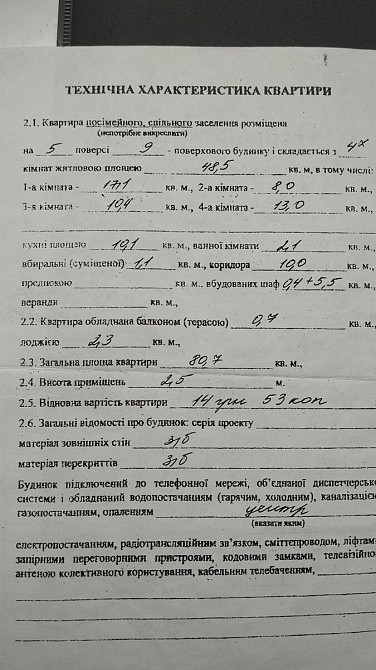 ТЕХНІЧНА ХАРАКТЕРИСТИКА КВАРТИРИ
2.1. Квартира посімейного, спільного заселення розміщена
(непотрібне викреслити)
на 5 поверсі 9 - поверхового будинку і складається з 4х
кімнат житловою площею 48,5 кв. м, в тому числі:
1-а кімната - 17,1 кв. м., 2-а кімната - 8,0 кв. м.,
3-я кімната - 10,4 кв. м., 4-а кімната - 13,0 кв. м.,
кухні площею - 10,1 кв. м., ванної кімнати 2,1 кв. м.,
вбиральні (суміщеної) 1,1 кв. м., коридора 10,0 кв. м.,
передпокою кв. м.. вбудованих шаф 0,4+5,5 кв. м.,
веранди кв. м.,
2.2. Квартира обладнана балконом (терасою) 0,7 кв. м.,
лоджією 2,3 кв. м.,
2.3. Загальна площа квартири 80,7 кв. м.,
2.4. Висота приміщень 2,5 м.
2.5. Відновна вартість квартири 14 грн 53 коп
2.6. Загальні відомості про будинок: серія проекту
матеріал зовнішніх стін з/б
матеріал перекриттів з/б
Будинок підключений до телефонної мережі, об'єднаної диспетчерсько
системи і обладнаний водопостачанням (гарячим, холодним), каналізацією
газопостачанням, опаленням центр
(вказати яким)
електропостачанням, радіотрансляційним зв'язком, сміттєпроводом, ліфтам
запірними переговорними пристроями, кодовими замками, телевізійно
антеною колективного користування, кабельним телебаченням,